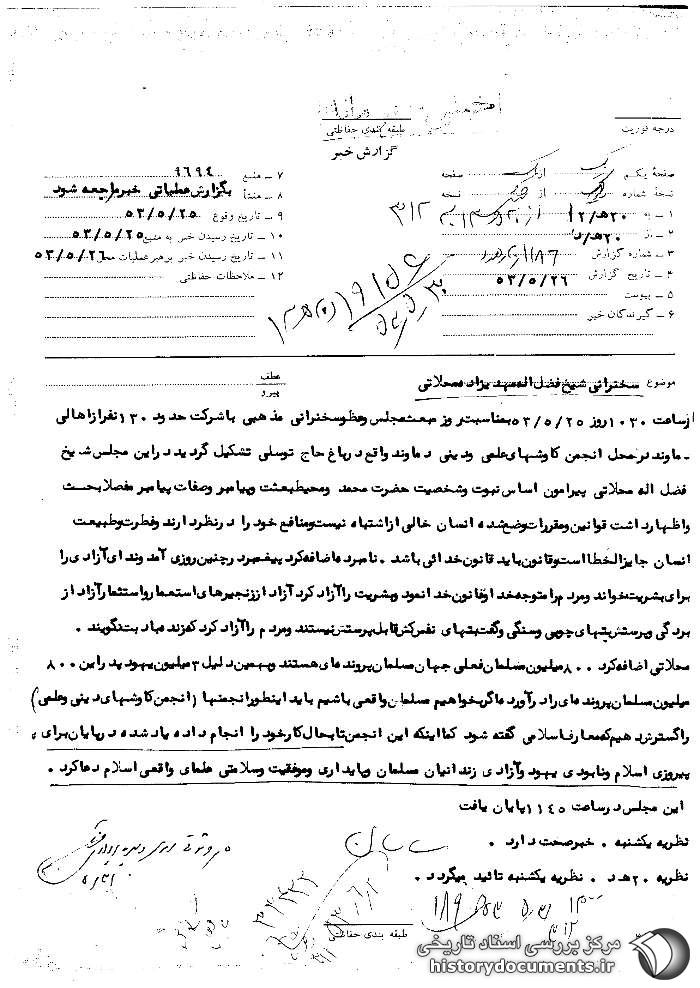 درجه فوریت
طبقه بندی حفاظتی
گزارش خبر
صفحه یکم از یک صفحه
نسخه شماره از نسخه
۱ ـ به ۲۰هـ۱۲ ۳۱۲
۲ ـ از ۲۰هـ د
۳ ـ شماره گزارش
۴ ـ تاریخ گزارش ۵۳/۵/۲۶
۵ ـ پیوست
۶ ـ گیرندگان خبر
۷ ـ منبع ۹۶۹۴
۸ ـ منشأ بگزارش عملیاتی خبر مراجعه شود
۹ ـ تاریخ وقوع ۵۳/۵/۲۵
۱۰ ـ تاریخ رسیدن خبر به منبع ۵۳/۵/۲۵
۱۱ ـ تاریخ رسیدن خبر برهبر عملیات محل ۵۳/۵/۲۶
۱۲ ـ ملاحظات حفاظتی
موضوع سخنرانی شیخ فضل اله مهدیزاده محلاتی
عطف
پیرو
از ساعت ۱۰۳۰ روز ۵۳/۵/۲۵ بمناسبت روز مبعث مجلس وعظ و سخنرانی مذهبی با شرکت حدود ۱۳۰ نفر از اهالی
ـ ماوند در محل انجمن کاوشهای علمی و دینی دماوند واقع در باغ حاج توسلی تشکیل گردید در این مجلس شیخ
فضل اله محلاتی پیرامون اساس نبوت و شخصیت حضرت محمد و محیط بعثت و پیامبر و صفات پیامبر مفصلا بحث
و اظهار داشت قوانین و مقررات وضع شده انسان خالی از اشتباه نیست و منافع خود را در نظر دارند و فطرت و طبیعت
انسان جایز الخطا است و قانون باید قانون خدائی باشد . نامبرده اضافه کرد پیغمبر در چنین روزی آمد و ندای آزادی را
برای بشریت خواند و مردم را متوجه خدا و قانون خدا نمود و بشریت را آزاد کرد آزاد از زنجیرهای استعمار و استثمار آزاد از
بردگی و پرستش بتهای چوبی و سنگی و گفت بتهای نفس کش قابل پرستش نیستند و مردم را آزاد کرد که زنده باد بت نگویند .
محلاتی اضافه کرد ۸۰۰ میلیون مسلمان فعلی جهان مسلمان پرونده ای هستند و بهمین دلیل ۳ میلیون یهود پدر این ۸۰۰
میلیون مسلمان پرونده ای را در آورده و اگر بخواهیم مسلمان واقعی باشیم باید اینطور انجمنها (انجمن کاوشهای دینی و علمی)
را گسترش دهیم که معارف اسلامی گفته شود کما اینکه این انجمن تا بحال کار خود را انجام داده یاد شده در پایان برای
پیروزی اسلام و نابودی یهود و آزادی زندانیان مسلمان و پایداری و موفقیت و سلامتی علمای واقعی اسلام دعا کرد .
این مجلس در ساعت ۱۱۴۵ پایان یافت
نظریه یکشنبه . خبر صحت دارد .
نظریه ۲۰هـ د . نظریه یکشنبه تائید میگردد .
طبقه بندی حفاظتی
مرکز بررسی اسناد تاریخی
historydocuments.ir